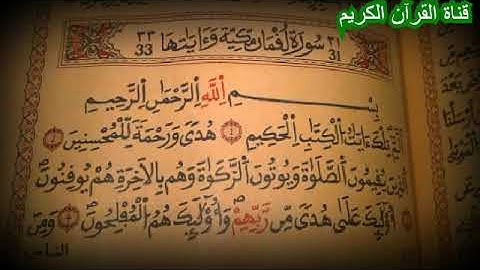 قناة القرآن الكريم
٣١ سُورَةُ لُقْمَان مَكِّيَّة وَءَايَاتُهَا ٣٣
31 33
بِسْمِ اِللَّهِ اِلرَّحْمَٰنِ اِلرَّحِيمِ
أَلَٓمِّٓ تِلْكَ ءَايَٰتُ اُلْكِتَٰبِ اِلْحَكِيمِ هُدىً وَرَحْمَةً لِّلْمُحْسِنِينَ
اَلذِينَ يُقِيمُونَ اَلصَّلَوٰةَ وَيُوتُونَ اَلزَّكَوٰةَ وَهُم بِالَاخِرَةِ هُمْ يُوقِنُونَ
أُوْلَٰٓئِكَ عَلَىٰ هُدىً مِّن رَّبِّهِمْ وَأُوْلَٰٓئِكَ هُمُ اُلْمُفْلِحُونَ وَمِنَ